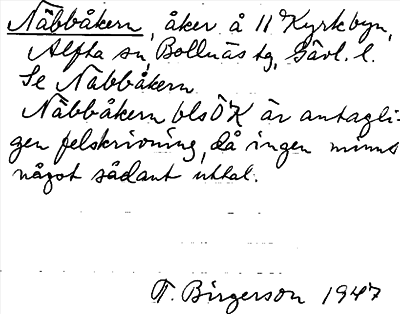 Näbbåkern, åker å 11 Kyrkbyn,
Alfta sn, Bollnäs tg, Gävl. l.
Se Nabbåkern
Näbbåkern bls ÖK är antagli-
gen felskrivning, då ingen minns
något sådant uttal.
T. Birgerson 1947